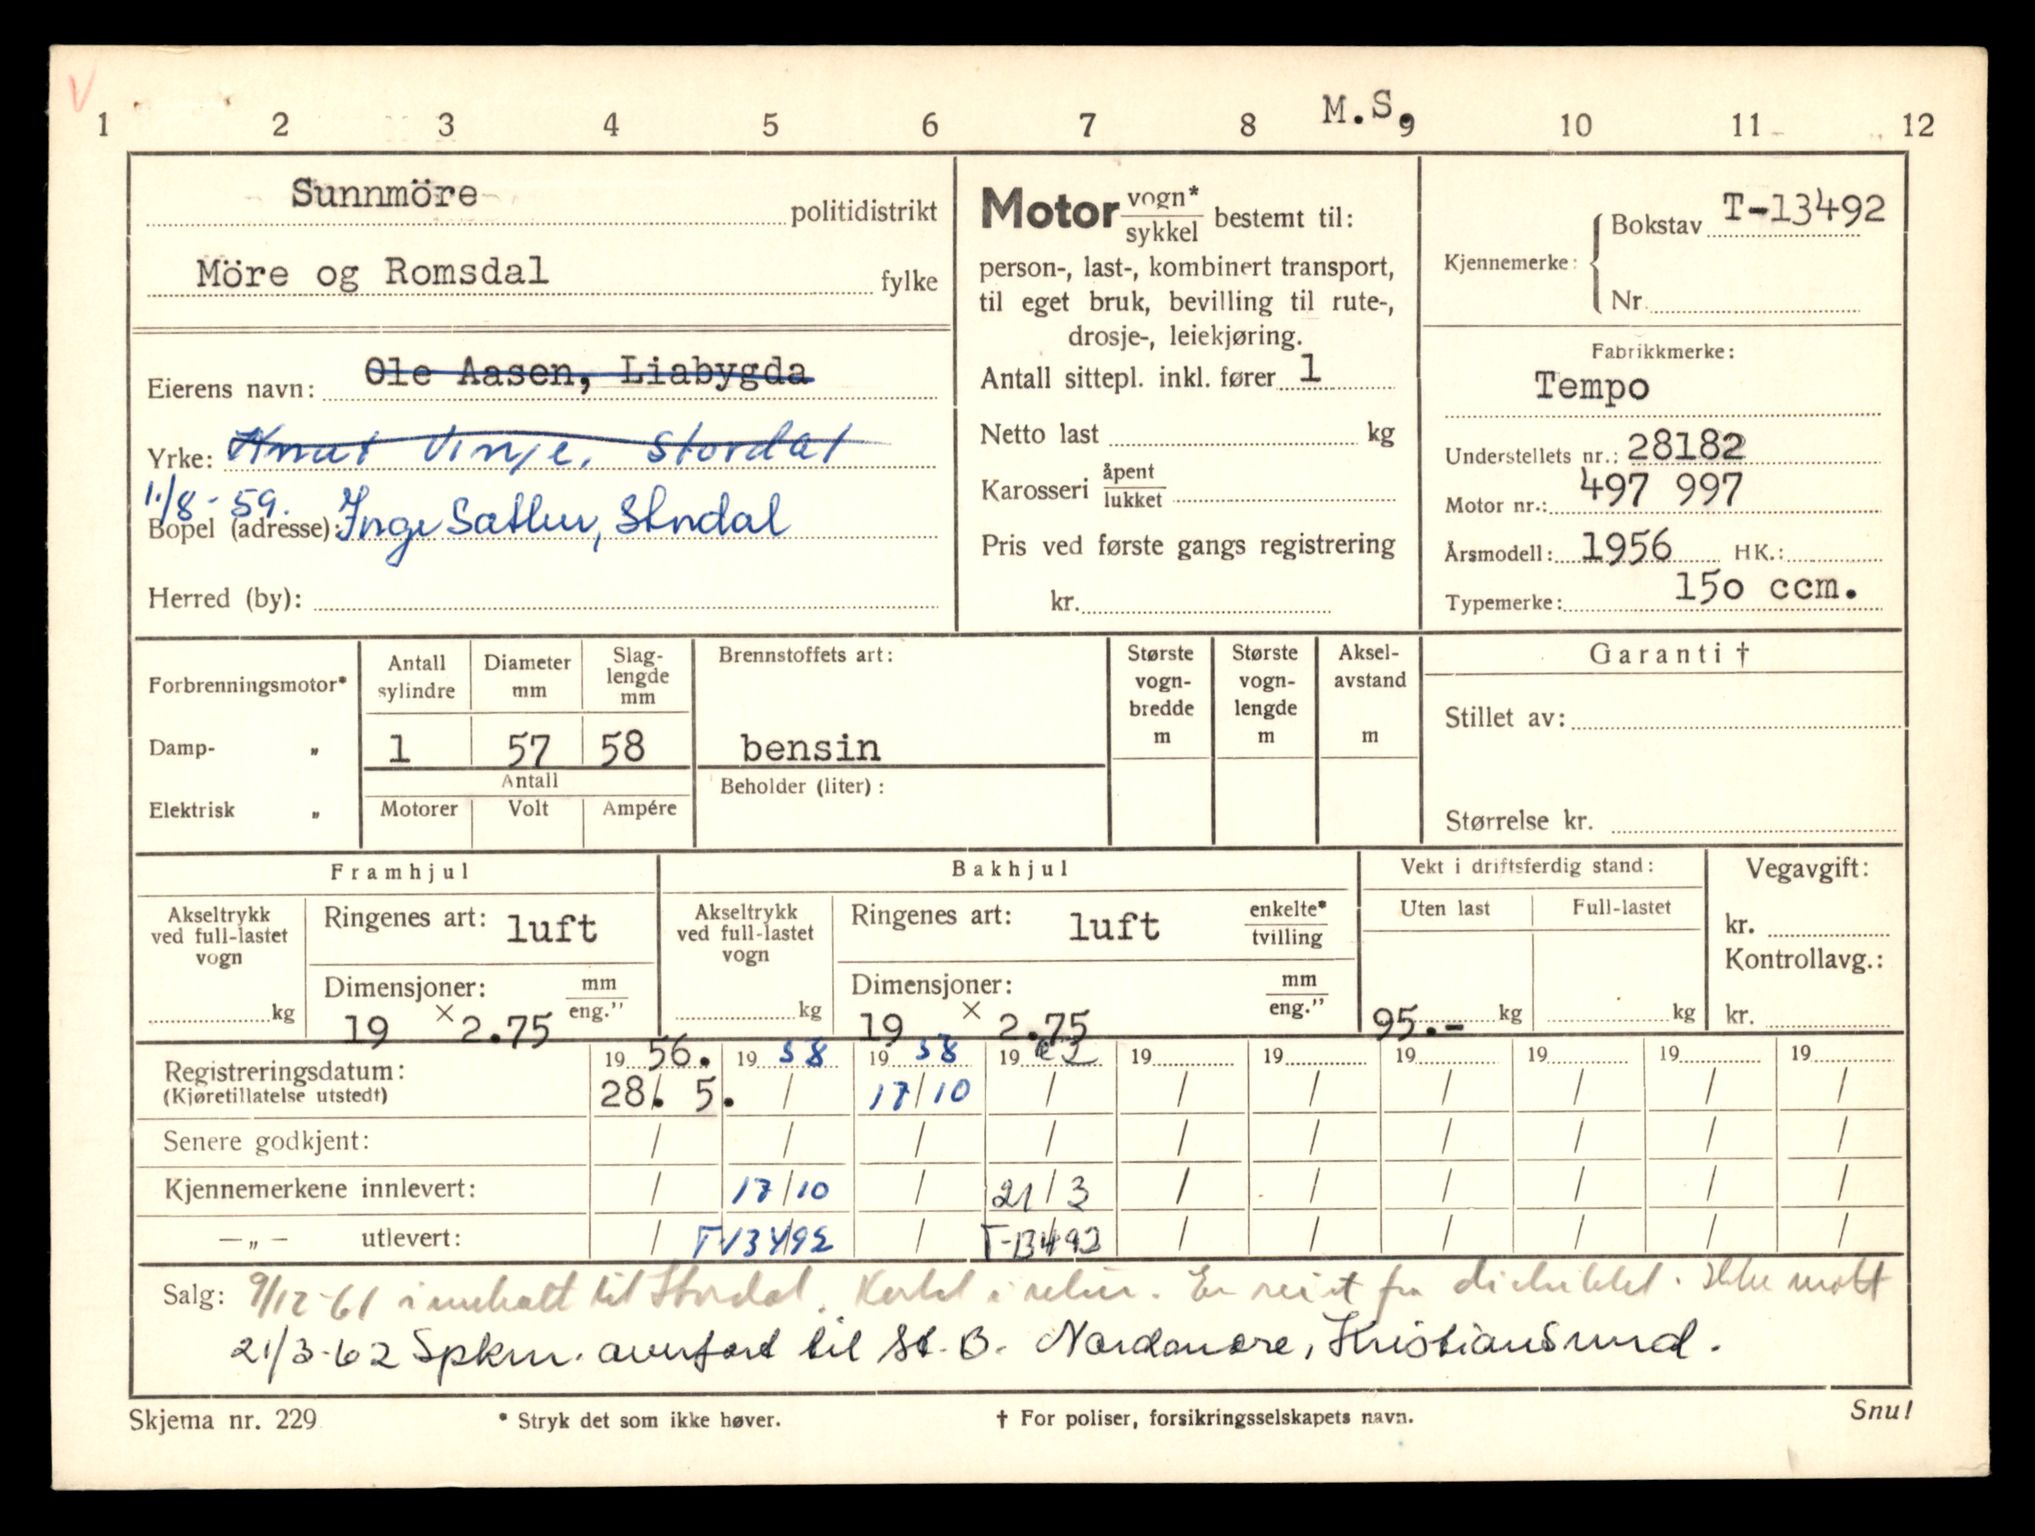 V
M.S.
1 2 3 4 5 6 7 8 9 10 11 12
Sunnmöre politidistrikt
Möre og Romsdal fylke
Eierens navn: Ole Aasen, Liabygda
Yrke: Knut Vinje, Stordal
1./8-59.
Bopel (adresse): Inge Sæther, Stordal
Herred (by):
Motor vogn*/sykkel bestemt til:
person-, last-, kombinert transport,
til eget bruk, bevilling til rute-,
drosje-, leiekjøring.
Antall sittepl. inkl. fører 1
Netto last kg
Karosseri åpent/lukket
Pris ved første gangs registrering
kr.
Kjennemerke: Bokstav T-13492
Nr.
Fabrikkmerke:
Tempo
Understellets nr.: 28182
Motor nr.: 497 997
Årsmodell: 1956 HK.:
Typemerke: 150 ccm.
Forbrenningsmotor*
Damp- „
Elektrisk „
Antall sylindre
1
Diameter mm
57
Slag-lengde mm
58
Antall
Motorer Volt Ampére
Brennstoffets art:
bensin
Beholder (liter):
Største vogn-bredde m
Største vogn-lengde m
Aksel-avstand m
Garanti †
Stillet av:
Størrelse kr.
Framhjul
Akseltrykk ved full-lastet vogn
kg
Ringenes art: luft
Dimensjoner: mm/eng."
19 × 2.75
Bakhjul
Akseltrykk ved full-lastet vogn
kg
Ringenes art: luft enkelte*/tvilling
Dimensjoner: mm/eng."
19 × 2.75
Vekt i driftsferdig stand:
Uten last Full-lastet
95.- kg kg
Vegavgift:
kr.
Kontrollavg.:
kr.
Registreringsdatum: 19 56. 19 58 19 58 19 62 19 19 19 19 19 19
(Kjøretillatelse utstedt) 28/. 5. / 17/10 / / / / / / /
Senere godkjent: / / / / / / / / / /
Kjennemerkene innlevert: / 17/10 / 21/3 / / / / / /
— „ — utlevert: / T-13492 / T-13492 / / / / / /
Salg: 9/12-61 til Stordal. i retur. Er reist fra distriktet. Ikke mott
21/3-62 Spkm. overført til St. B. Nordmøre, Kristiansund.
Skjema nr. 229
* Stryk det som ikke høver.
† For poliser, forsikringsselskapets navn.
Snu!